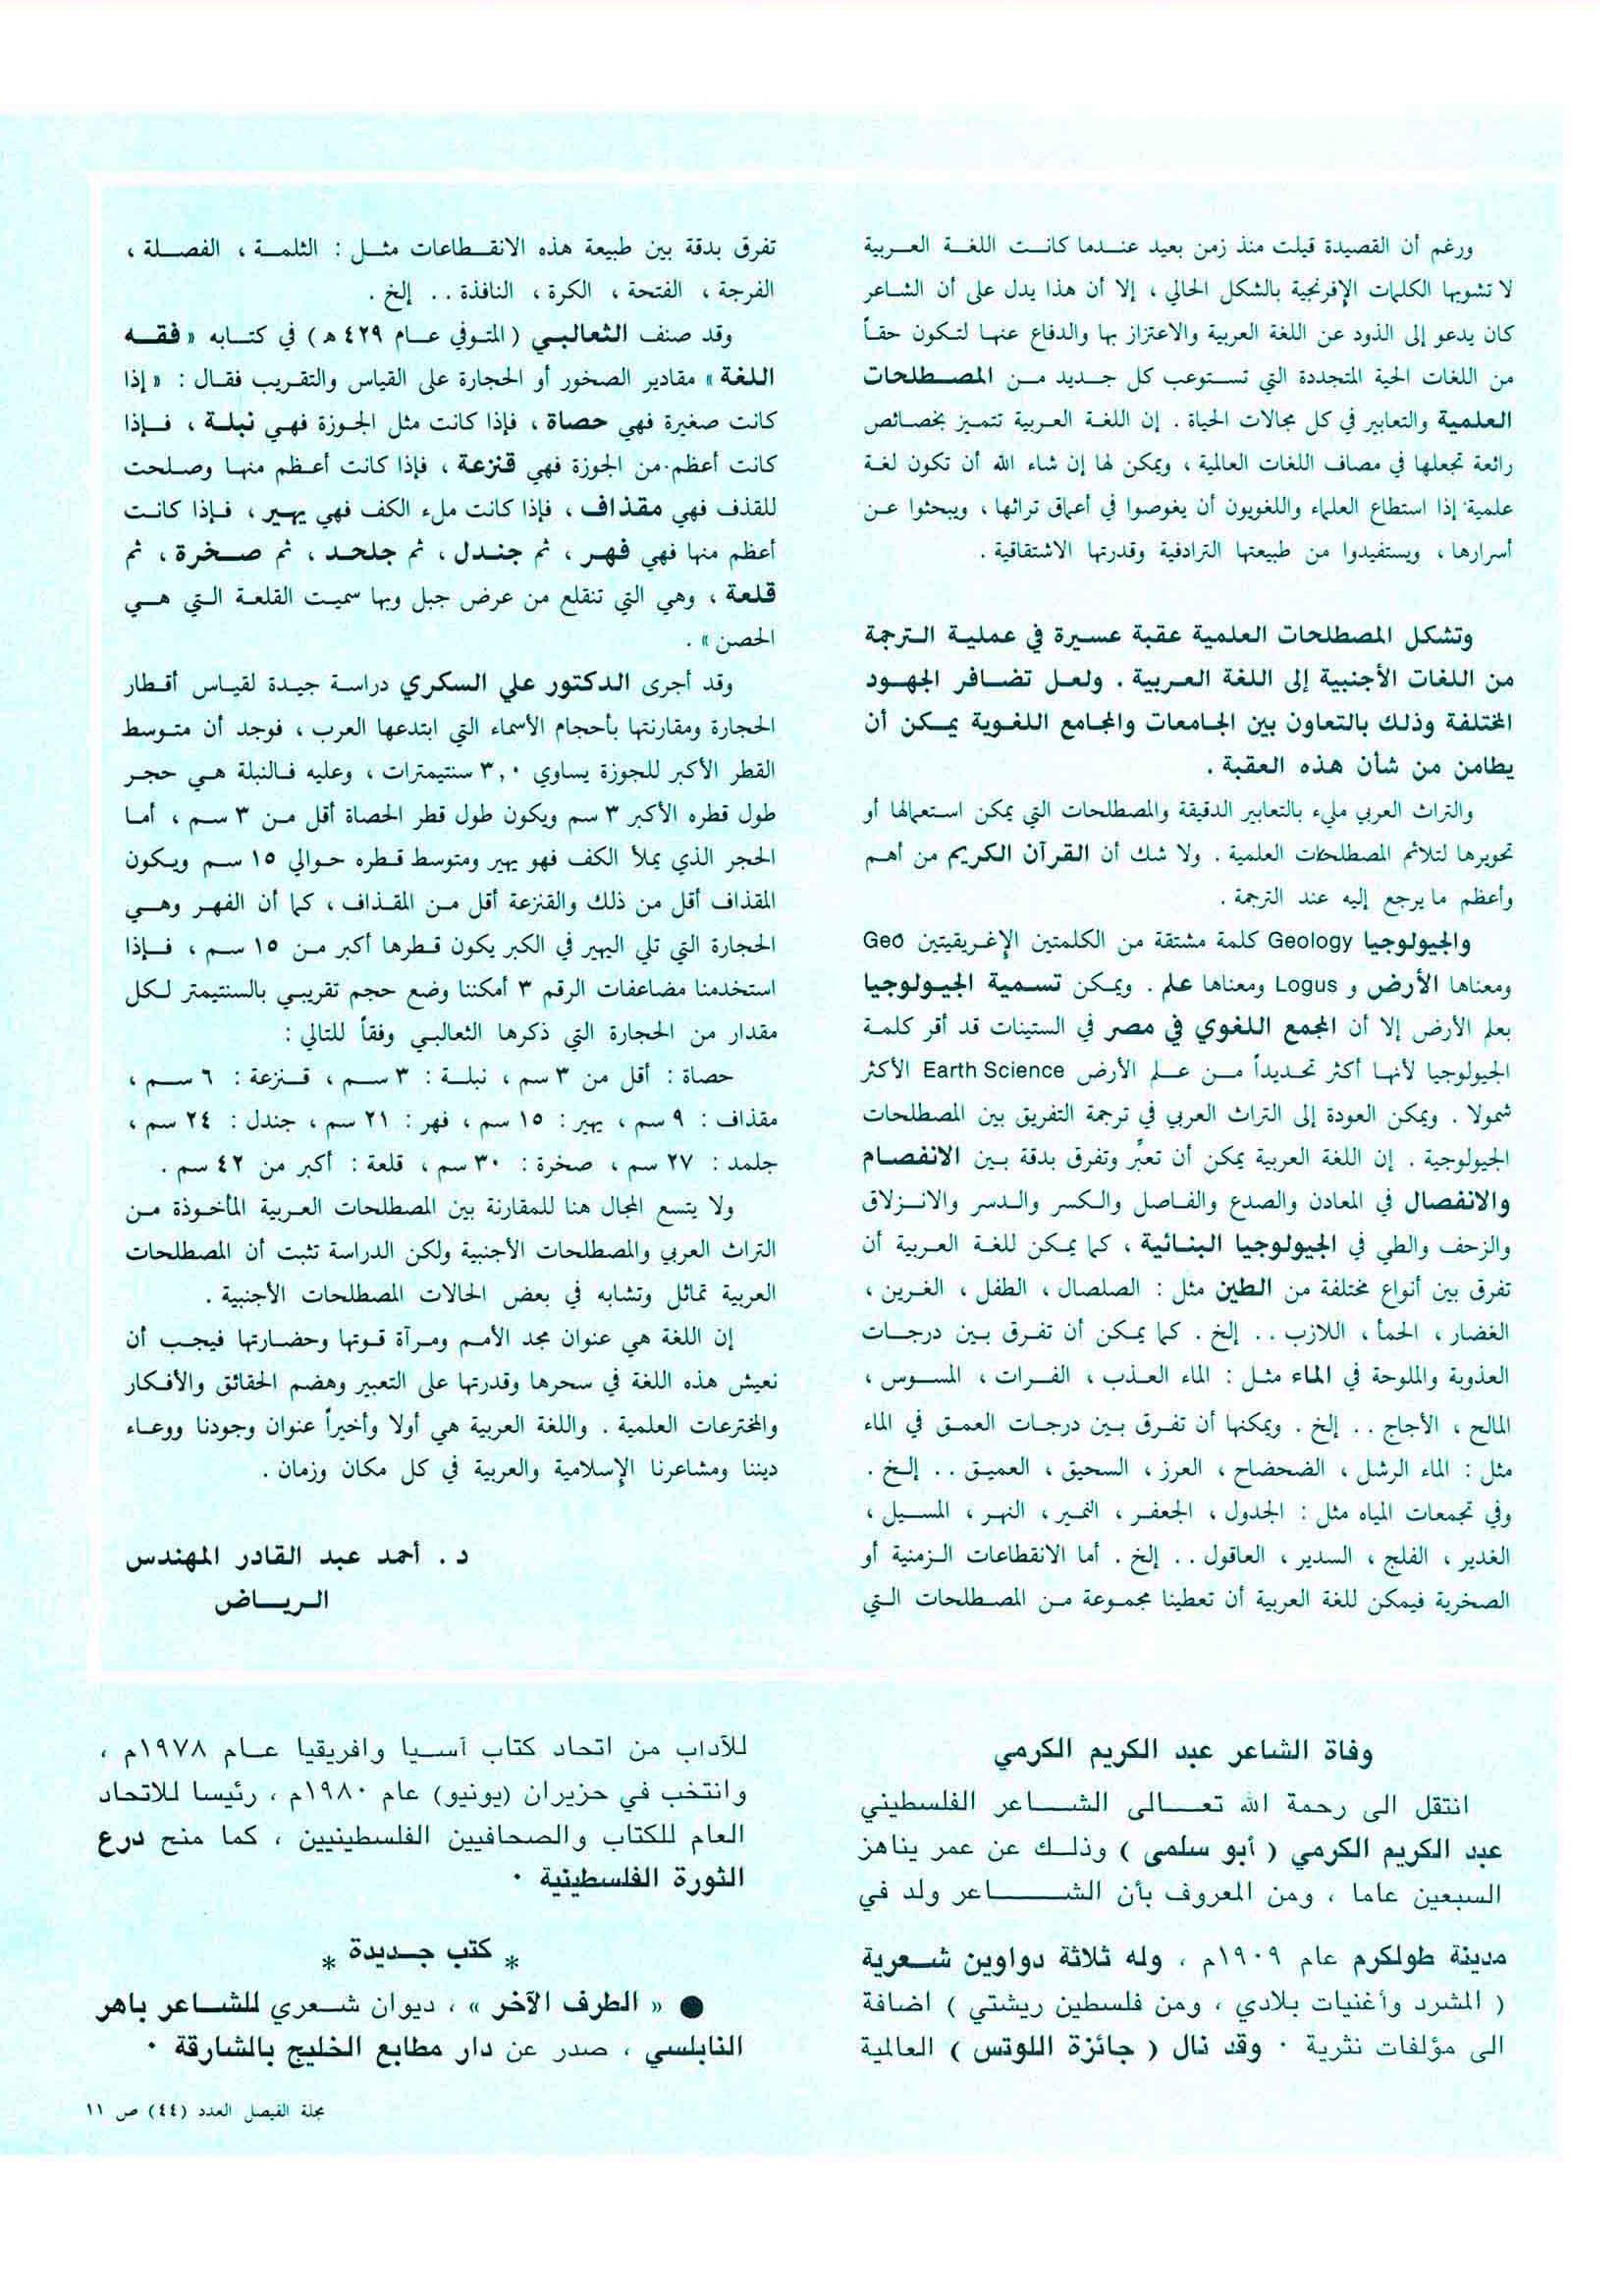 ورغم أن القصيدة قيلت منذ زمن بعيد عندما كانت اللغة العربية
لا تشوبها الكلمات الإفرنجية بالشكل الحالي ، إلا أن هذا يدل على أن الشاعر
كان يدعو إلى الذود عن اللغة العربية والاعتزاز بها والدفاع عنها لتكون حقاً
من اللغات الحية المتجددة التي تستوعب كل جديد من المصطلحات
العلمية والتعابير في كل مجالات الحياة . إن اللغة العربية تتميز بخصائص
رائعة تجعلها في مصاف اللغات العالمية ، ويمكن لها إن شاء الله أن تكون لغة
علمية إذا استطاع العلماء واللغويون أن يغوصوا في أعماق تراثها ، ويبحثوا عن
أسرارها ، ويستفيدوا من طبيعتها الترادفية وقدرتها الاشتقاقية .
وتشكل المصطلحات العلمية عقبة عسيرة في عملية الترجمة
من اللغات الأجنبية إلى اللغة العربية . ولعل تضافر الجهود
المختلفة وذلك بالتعاون بين الجامعات والمجامع اللغوية يمكن أن
يطامن من شأن هذه العقبة .
والتراث العربي مليء بالتعابير الدقيقة والمصطلحات التي يمكن استعمالها أو
تحويرها لتلائم المصطلحات العلمية . ولا شك أن القرآن الكريم من أهم
وأعظم ما يرجع إليه عند الترجمة .
والجيولوجيا Geology كلمة مشتقة من الكلمتين الإغريقيتين Geo
ومعناها الأرض و Logus ومعناها علم . ويمكن تسمية الجيولوجيا
بعلم الأرض إلا أن المجمع اللغوي في مصر في الستينات قد أقر كلمة
الجيولوجيا لأنها أكثر تحديداً من علم الأرض Earth Science الأكثر
شمولا . ويمكن العودة إلى التراث العربي في ترجمة التفريق بين المصطلحات
الجيولوجية . إن اللغة العربية يمكن أن تعبّر وتفرق بدقة بين الانفصام
والانفصال في المعادن والصدع والفاصل والكسر والدسر والانزلاق
والزحف والطي في الجيولوجيا البنائية ، كما يمكن للغة العربية أن
تفرق بين أنواع مختلفة من الطين مثل : الصلصال ، الطفل ، الغرين ،
الغضار ، الحمأ ، اللازب . . إلخ . كما يمكن أن تفرق بين درجات
العذوبة والملوحة في الماء مثل : الماء العذب ، الفرات ، المسوس ،
المالح ، الأجاج . . إلخ . ويمكنها أن تفرق بين درجات العمق في الماء
مثل : الماء الرشل ، الضحضاح ، العرز ، السحيق ، العميق . . إلخ .
وفي تجمعات المياه مثل : الجدول ، الجعفر ، النمير ، النهر ، المسيل ،
الغدير ، الفلج ، السدير ، العاقول . . إلخ . أما الانقطاعات الزمنية أو
الصخرية فيمكن للغة العربية أن تعطينا مجموعة من المصطلحات التي
تفرق بدقة بين طبيعة هذه الانقطاعات مثل : الثلمة ، الفصلة ،
الفرجة ، الفتحة ، الكرة ، النافذة . . إلخ .
وقد صنف الثعالبي (المتوفي عام ٤٢٩ هـ) في كتابه « فقه
اللغة » مقادير الصخور أو الحجارة على القياس والتقريب فقال : « إذا
كانت صغيرة فهي حصاة ، فإذا كانت مثل الجوزة فهي نبلة ، فإذا
كانت أعظم من الجوزة فهي قنزعة ، فإذا كانت أعظم منها وصلحت
للقذف فهي مقذاف ، فإذا كانت ملء الكف فهي يهير ، فإذا كانت
أعظم منها فهي فهر ، ثم جندل ، ثم جلحد ، ثم صخرة ، ثم
قلعة ، وهي التي تنقلع من عرض جبل وبها سميت القلعة التي هي
الحصن » .
وقد أجرى الدكتور علي السكري دراسة جيدة لقياس أقطار
الحجارة ومقارنتها بأحجام الأسماء التي ابتدعها العرب ، فوجد أن متوسط
القطر الأكبر للجوزة يساوي ٣,٠ سنتيمترات ، وعليه فالنبلة هي حجر
طول قطره الأكبر ٣ سم ويكون طول قطر الحصاة أقل من ٣ سم ، أما
الحجر الذي يملأ الكف فهو يهير ومتوسط قطره حوالي ١٥ سم ويكون
المقذاف أقل من ذلك والقنزعة أقل من المقذاف ، كما أن الفهر وهي
الحجارة التي تلي اليهير في الكبر يكون قطرها أكبر من ١٥ سم ، فإذا
استخدمنا مضاعفات الرقم ٣ أمكننا وضع حجم تقريبي بالسنتيمتر لكل
مقدار من الحجارة التي ذكرها الثعالبي وفقاً للتالي :
حصاة : أقل من ٣ سم ، نبلة : ٣ سم ، قنزعة : ٦ سم ،
مقذاف : ٩ سم ، يهير : ١٥ سم ، فهر : ٢١ سم ، جندل : ٢٤ سم ،
جلمد : ٢٧ سم ، صخرة : ٣٠ سم ، قلعة : أكبر من ٤٢ سم .
ولا يتسع المجال هنا للمقارنة بين المصطلحات العربية المأخوذة من
التراث العربي والمصطلحات الأجنبية ولكن الدراسة تثبت أن المصطلحات
العربية تماثل وتشابه في بعض الحالات المصطلحات الأجنبية .
إن اللغة هي عنوان مجد الأمم ومرآة قوتها وحضارتها فيجب أن
نعيش هذه اللغة في سحرها وقدرتها على التعبير وهضم الحقائق والأفكار
والمخترعات العلمية . واللغة العربية هي أولا وأخيراً عنوان وجودنا ووعاء
ديننا ومشاعرنا الإسلامية والعربية في كل مكان وزمان .
د . أحمد عبد القادر المهندس
الرياض
وفاة الشاعر عبد الكريم الكرمي
انتقل الى رحمة الله تعالى الشاعر الفلسطيني
عبد الكريم الكرمي ( أبو سلمى ) وذلك عن عمر يناهز
السبعين عاما ، ومن المعروف بأن الشاعر ولد في
مدينة طولكرم عام ١٩٠٩م ، وله ثلاثة دواوين شعرية
( المشرد وأغنيات بلادي ، ومن فلسطين ريشتي ) اضافة
الى مؤلفات نثرية ٠ وقد نال ( جائزة اللوتس ) العالمية
للآداب من اتحاد كتاب آسيا وافريقيا عام ١٩٧٨م ،
وانتخب في حزيران (يونيو) عام ١٩٨٠م ، رئيسا للاتحاد
العام للكتاب والصحافيين الفلسطينيين ، كما منح درع
الثورة الفلسطينية ٠
* كتب جديدة *
● « الطرف الآخر » ، ديوان شعري للشاعر باهر
النابلسي ، صدر عن دار مطابع الخليج بالشارقة ٠
مجلة الفيصل العدد (٤٤) ص ١١